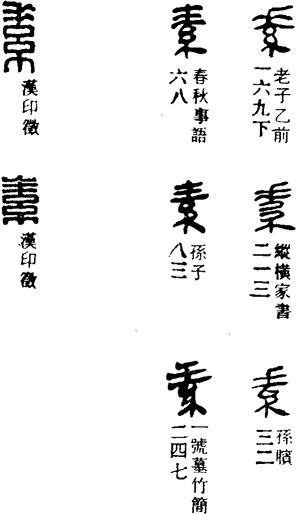 素
老子乙前
一六九下
素
縱橫家書
二一三
素
孫臏
三二
素
春秋事語
六八
素
孫子
八三
素
一號墓竹簡
二四七
素
漢印徵
素
漢印徵